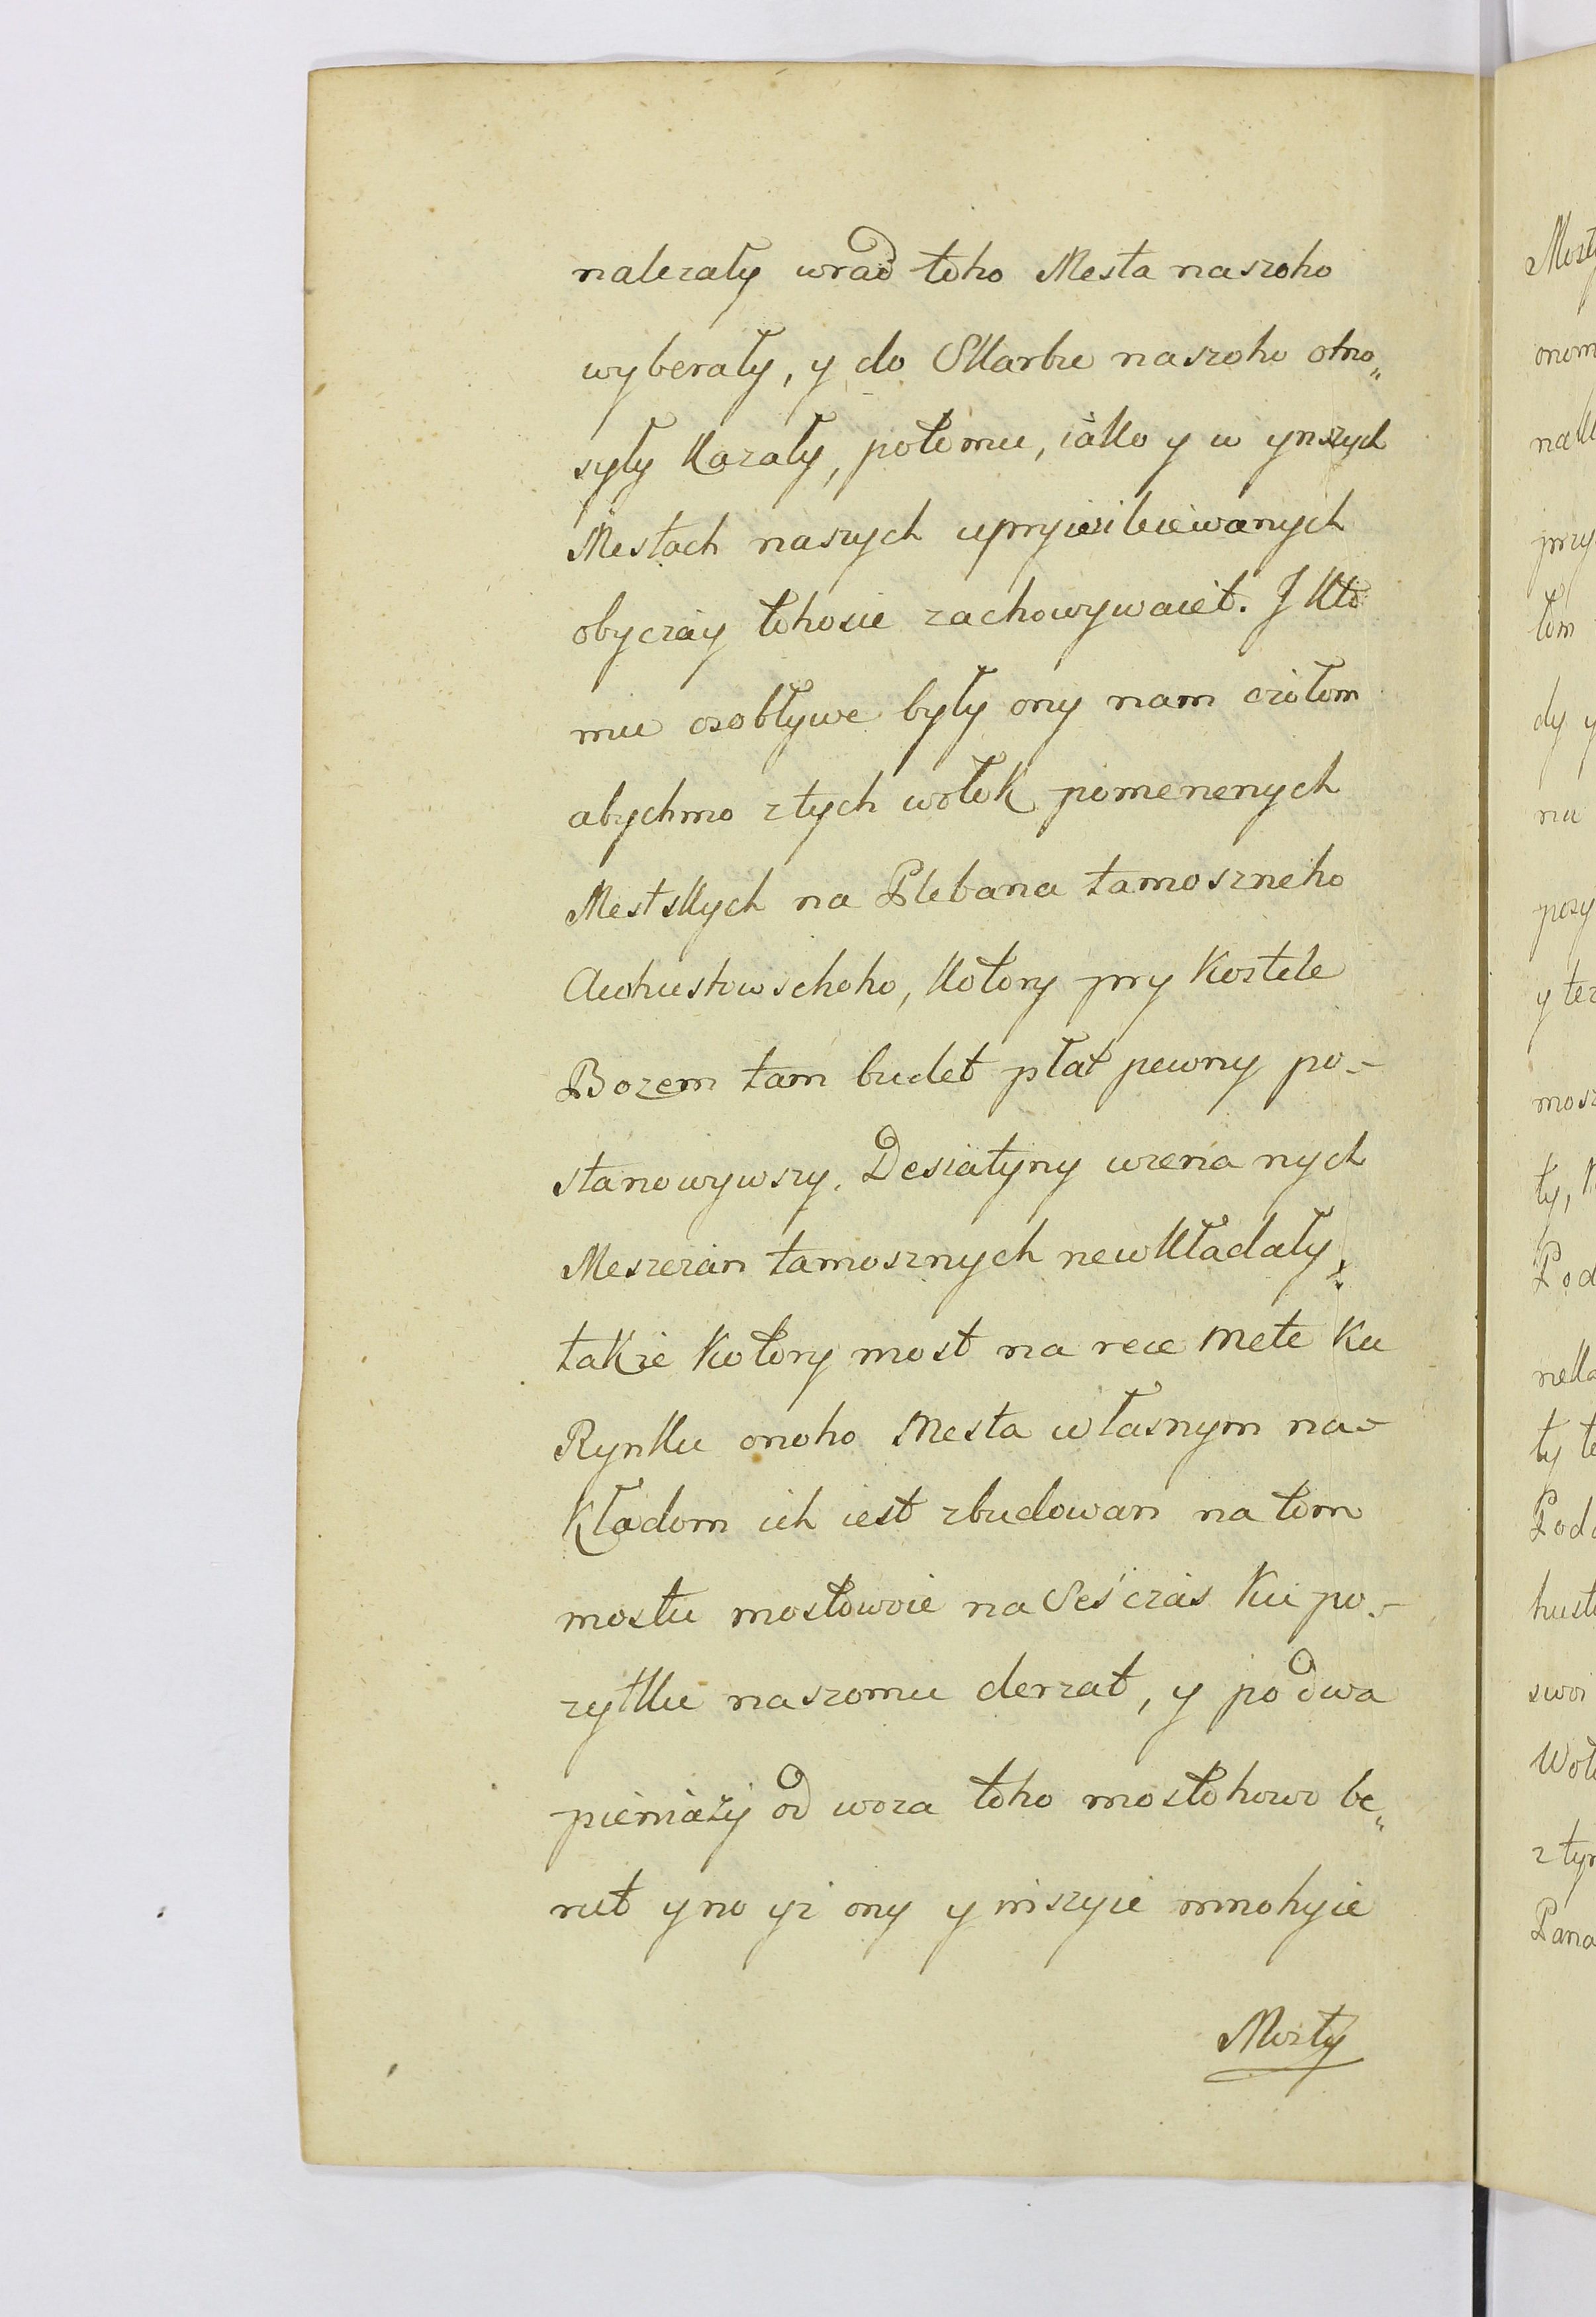 nalezały wrad toho Mesta naszoho
wyberały, y do Skarbu naszoho otno„
syły kazały, potomu, iako y w ynszych
Mestach naszych uprywilewanych
obyczay tohosie zachowywaiet. J kto
mu osobływe były ony nam czołom
abychmo z tych wołok pomenenych
Mestskych na Plebana tamosznoho
Auhustowschoho, kotory pry Kostele
Bozem tam budet płat pewny po-
stanowywszy. Desiatyny wzena nych
Meszczan tamosznych newkładały:
takze kotory most na rece Mete Ku
Rynku onoho Mesta własnym na-
Kładom ich iest zbudowan na tom
mostu mostowoie na Seś czas Ku po-
zytku naszomu derzat, y po dwa
pieniaży od woza toho mostohowo be„
rut y no yz ony y inszyie mnohyie
Mosty
Mosty
onom
nale
przy
tom
dy y
na
pozy
y tez
mosz
ty, K
Pod
neka
ty te
Podd
hust
swoi
Woł
z tym
Pana